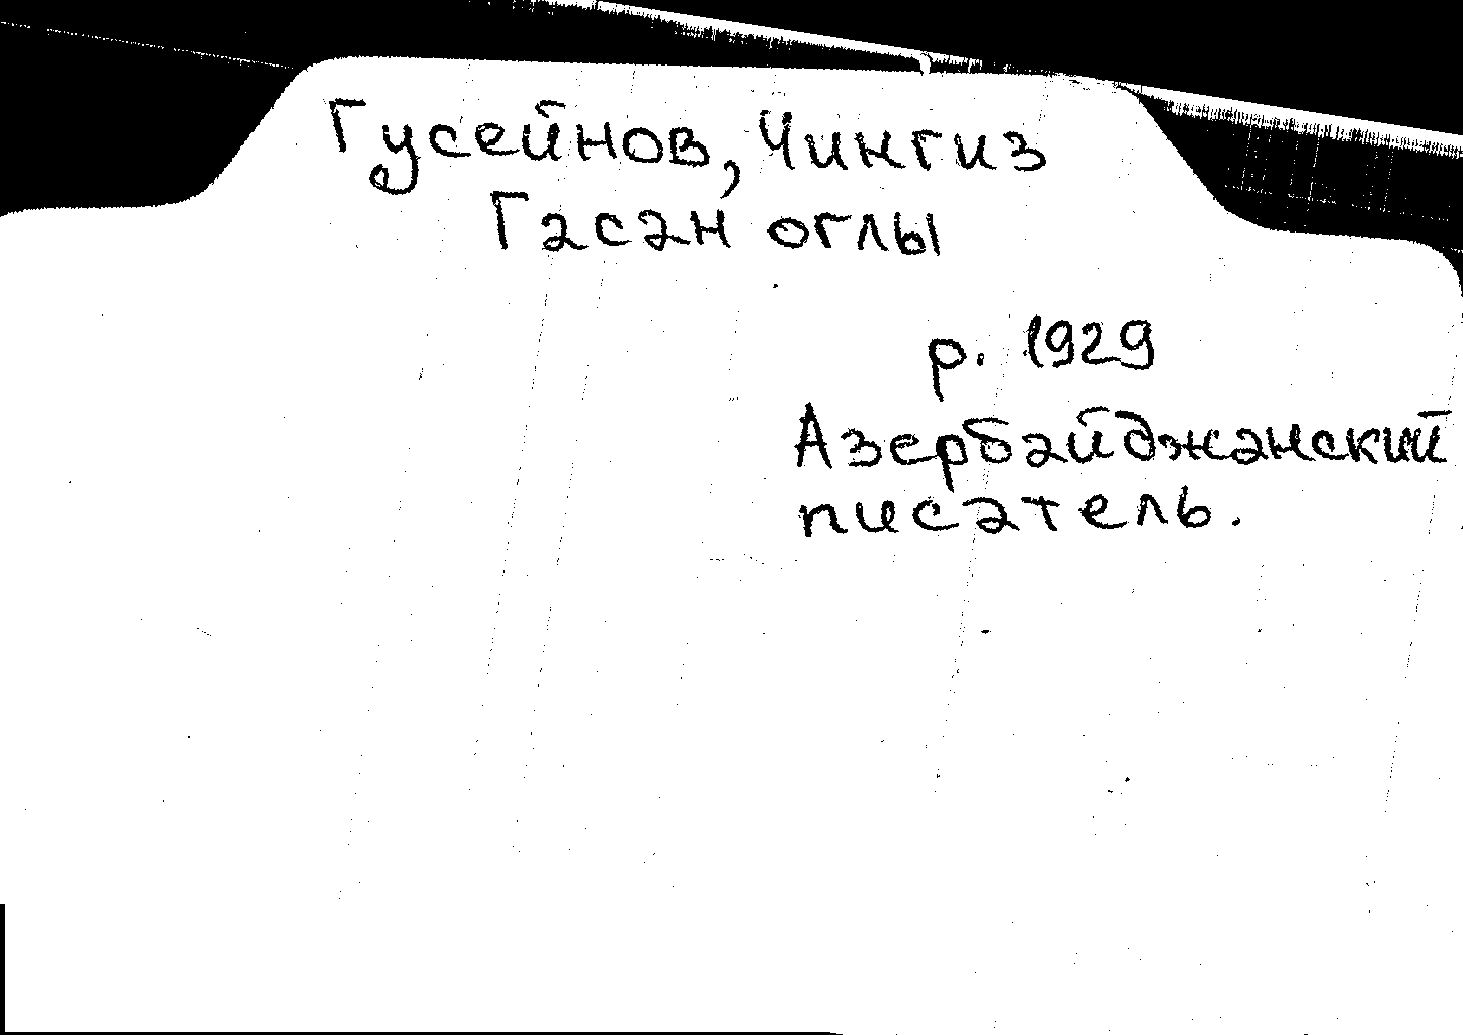 Гусейнов, Чингиз
Гасан оглы
р. 1929
Азербайджанский
писатель.